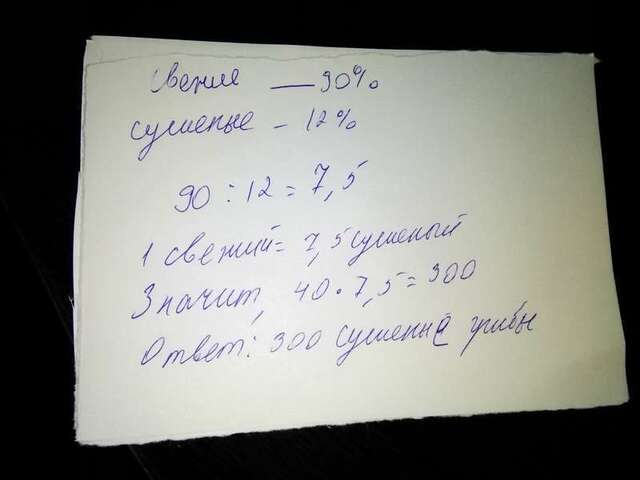 свежие — 90%
сушеные - 12%
90 : 12 = 7,5
1 свежий = 7,5 сушеный
Значит, 40 · 7,5 = 300
Ответ: 300 сушены грибы